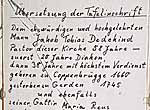 Übersetzung der Tafelinschrift
Dem ehrwürdigen und hochgelehrten
Mann Johann Tobias Dedekind
Pastor dieser Kirche 58 Jahre –
zuerst 28 Jahre Diakon,
dann 3 Jahre mit höchstem Verdienst
geboren zu Coppenbrügge 1660
gestorben Gerden 1745
und ebenfalls
seiner Gattin Maria Rens